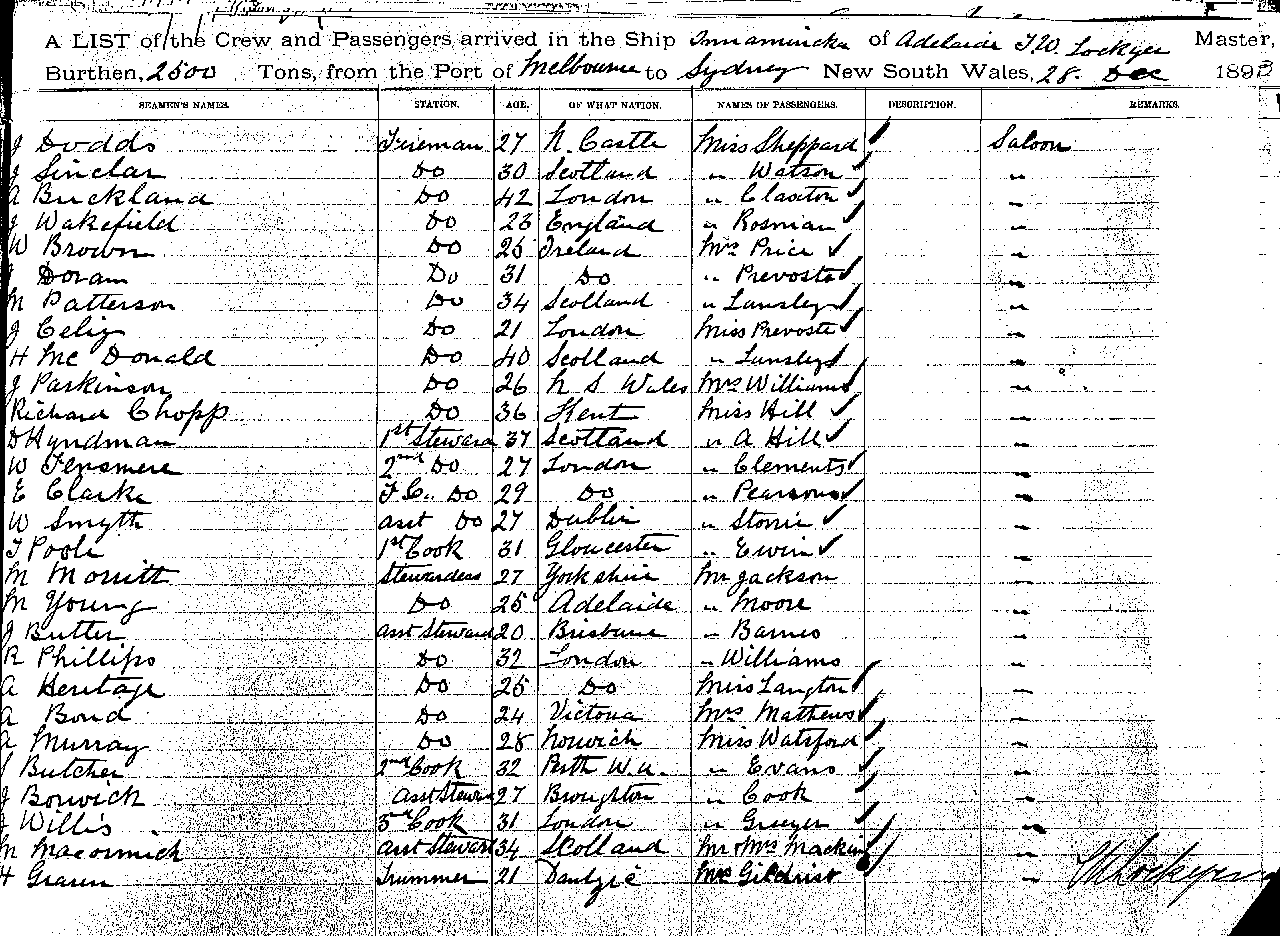 A LIST of the Crew and Passengers arrived in the Ship Innamincka of Adelaide J W. Lockyer Master,
Burthen, 2500 Tons, from the Port of Melbourne to Sydney New South Wales, 28 Dec 1893
SEAMEN'S NAMES. STATION. AGE. OF WHAT NATION. NAMES OF PASSENGERS. DESCRIPTION. REMARKS.
J Dodds Fireman 27 N. Castle Miss Sheppard Saloon
J Sinclar Do 30 Scotland " Watson "
A Buckland Do 42 London " Claxton "
J Wakefield Do 23 England " Rosman "
W Brown Do 25 Ireland Mrs Price "
J Doran Do 31 Do " Prevosts "
M Patterson Do 34 Scotland " Lansley "
J Do 21 London Miss Prevoste "
H Mc Donald Do 40 Scotland " Lansley "
J Parkinson Do 26 N S Wales Mrs Williams "
Richard Chopp Do 36 Kent Miss Hill "
D Hyndman 1st Steward 37 Scotland " A Hill "
W 2nd Do 27 London " Clements "
E Clarke F.C. Do 29 Do " Pearsons "
W Smyth asst Do 27 Dublin " Storrie "
T Poole 1st Cook 31 Gloucester " Ewin "
M Morritt Stewardess 27 Yorkshire Mr Jackson "
M Young Do 25 Adelaide " Moore "
J Butler asst Steward 20 Brisbane " Barnes "
R Phillips Do 32 London " Williams "
A Heritage Do 25 Do Miss Langton "
A Bond Do 24 Victoria Mrs Mathews "
A Murray Do 28 Norwich Miss Watsford "
J Butcher 2nd Cook 32 Perth W.A. " Evans "
J Borwick Asst Steward 27 Broughton " Cook "
J Willis 3rd Cook 31 London " "
M Macormick asst Stewart 34 Scotland Mr & Mrs Mackin "
H Trummer 21 Dantzic Gilchrist "